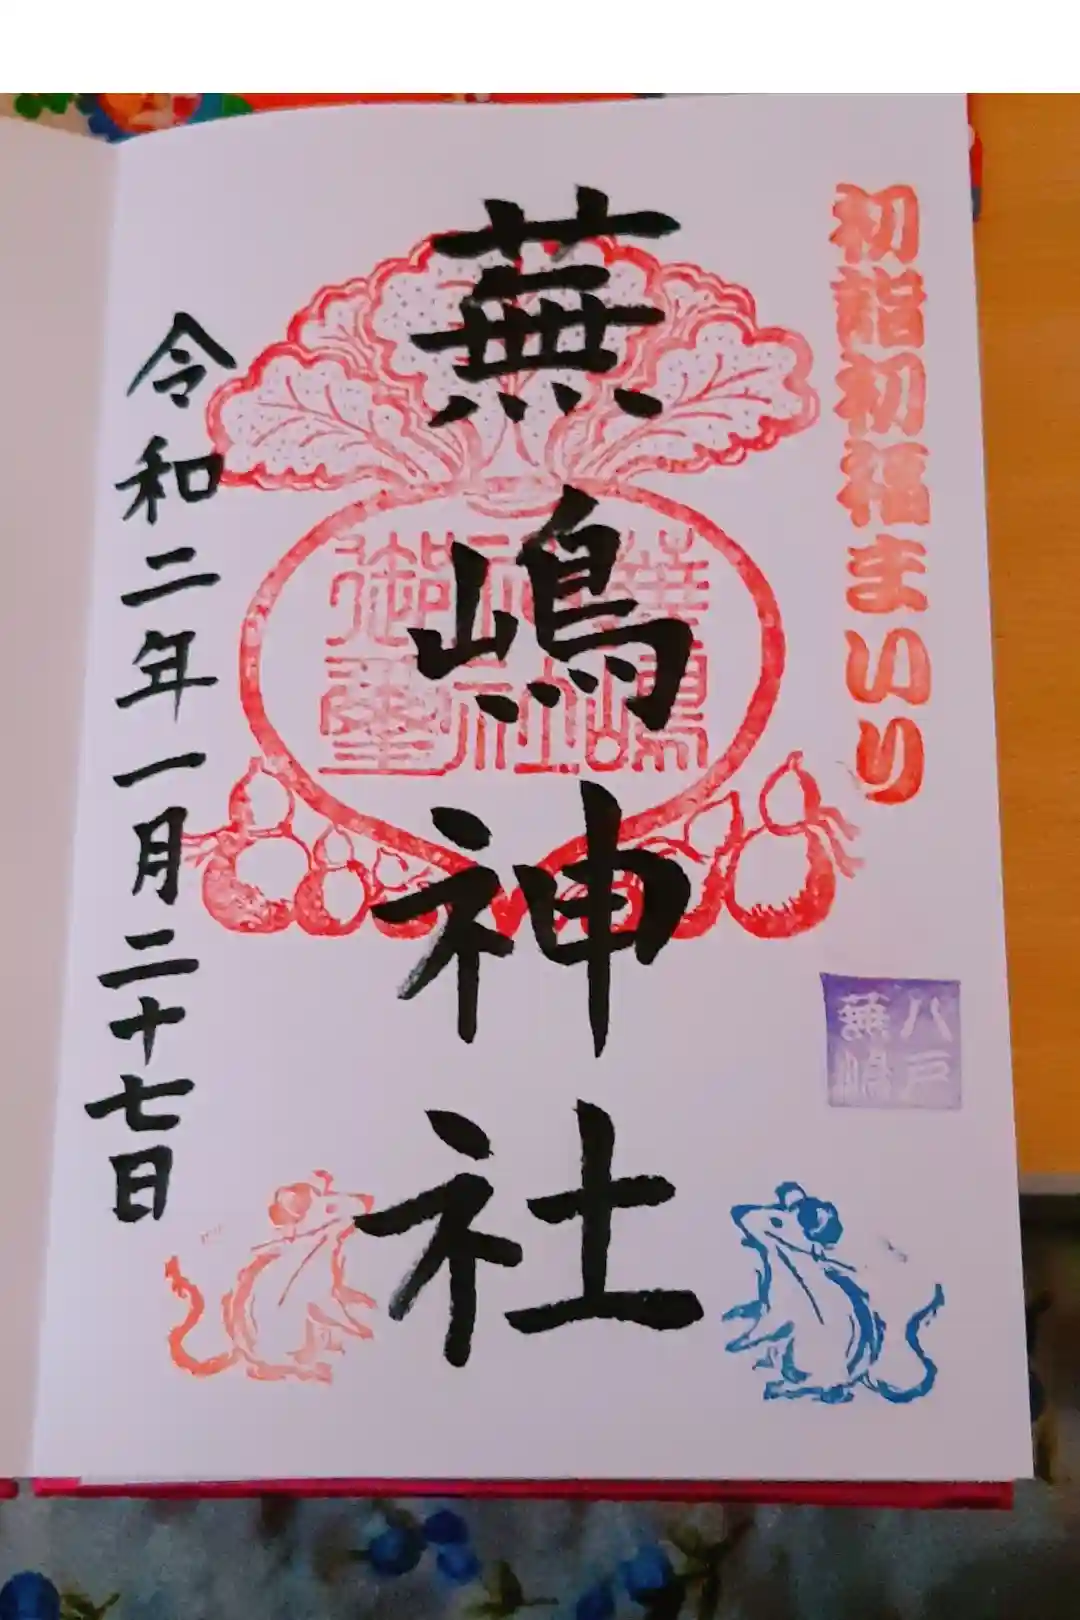 初詣初福まいり
八戸
蕪嶋
蕪嶋神社
蕪嶋
神社
御璽
令和二年一月二十七日